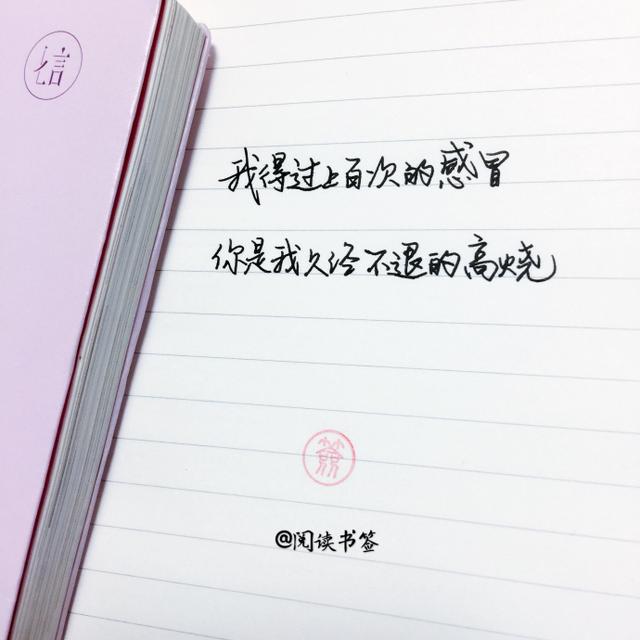 信
我得过上百次的感冒
你是我久经不退的高烧
@阅读书签